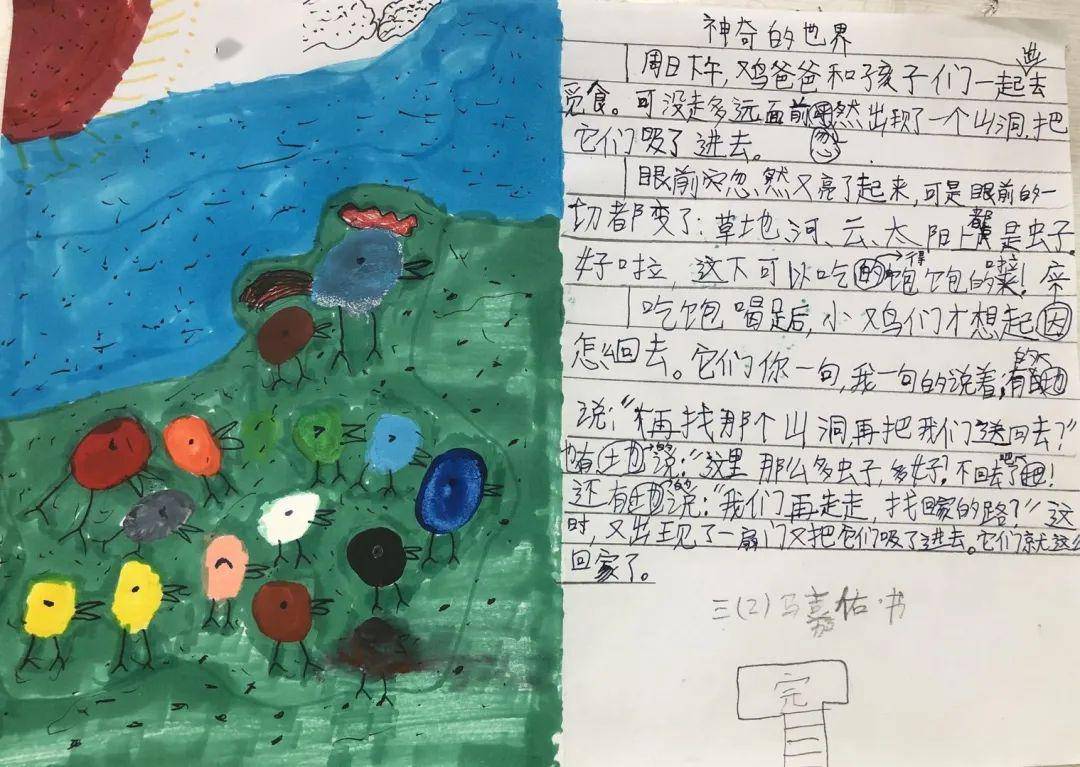 神奇的世界
周日下午,鸡爸爸和孩子们一起出去
觅食。可没走多远面前忽然出现了一个山洞,把
它们吸了进去。
眼前突忽然又亮了起来,可是眼前的一
切都变了:草地、河、云、太阳上都是虫子
好啦,这下可以吃得饱饱的啦!
吃饱喝足后,小鸡们才想起
怎么回去。它们你一句,我一句的说着:有的
说:“再找那个山洞,再把我们送回去?”
有的说:“这里那么多虫子,多好?不回去了吧!
还有的说:“我们再走走,找回家的路?”这
时,又出现了一扇门又把它们吸了进去。它们就这么
回家了。
三(2)马嘉佑·书
完